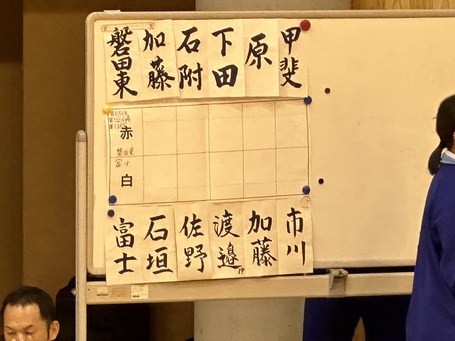 磐田東 加藤 石附 下田 原 甲斐
赤
白
富士 石垣 佐野 渡邉 加藤 市川